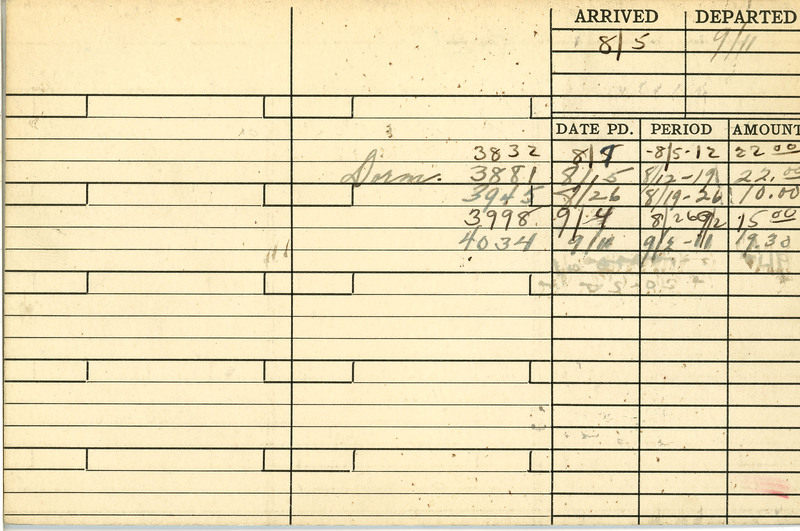 ARRIVED DEPARTED
8/5 9/11
DATE PD. PERIOD AMOUNT
3832 8/8 -8/5-12 22 00
Dorm. 3881 8/15 8/12-19 22.00
3945 8/26 8/19-26 10.00
3998 9/4 8/26 9/2 15 00
4034 9/11 9/2-11 19.30